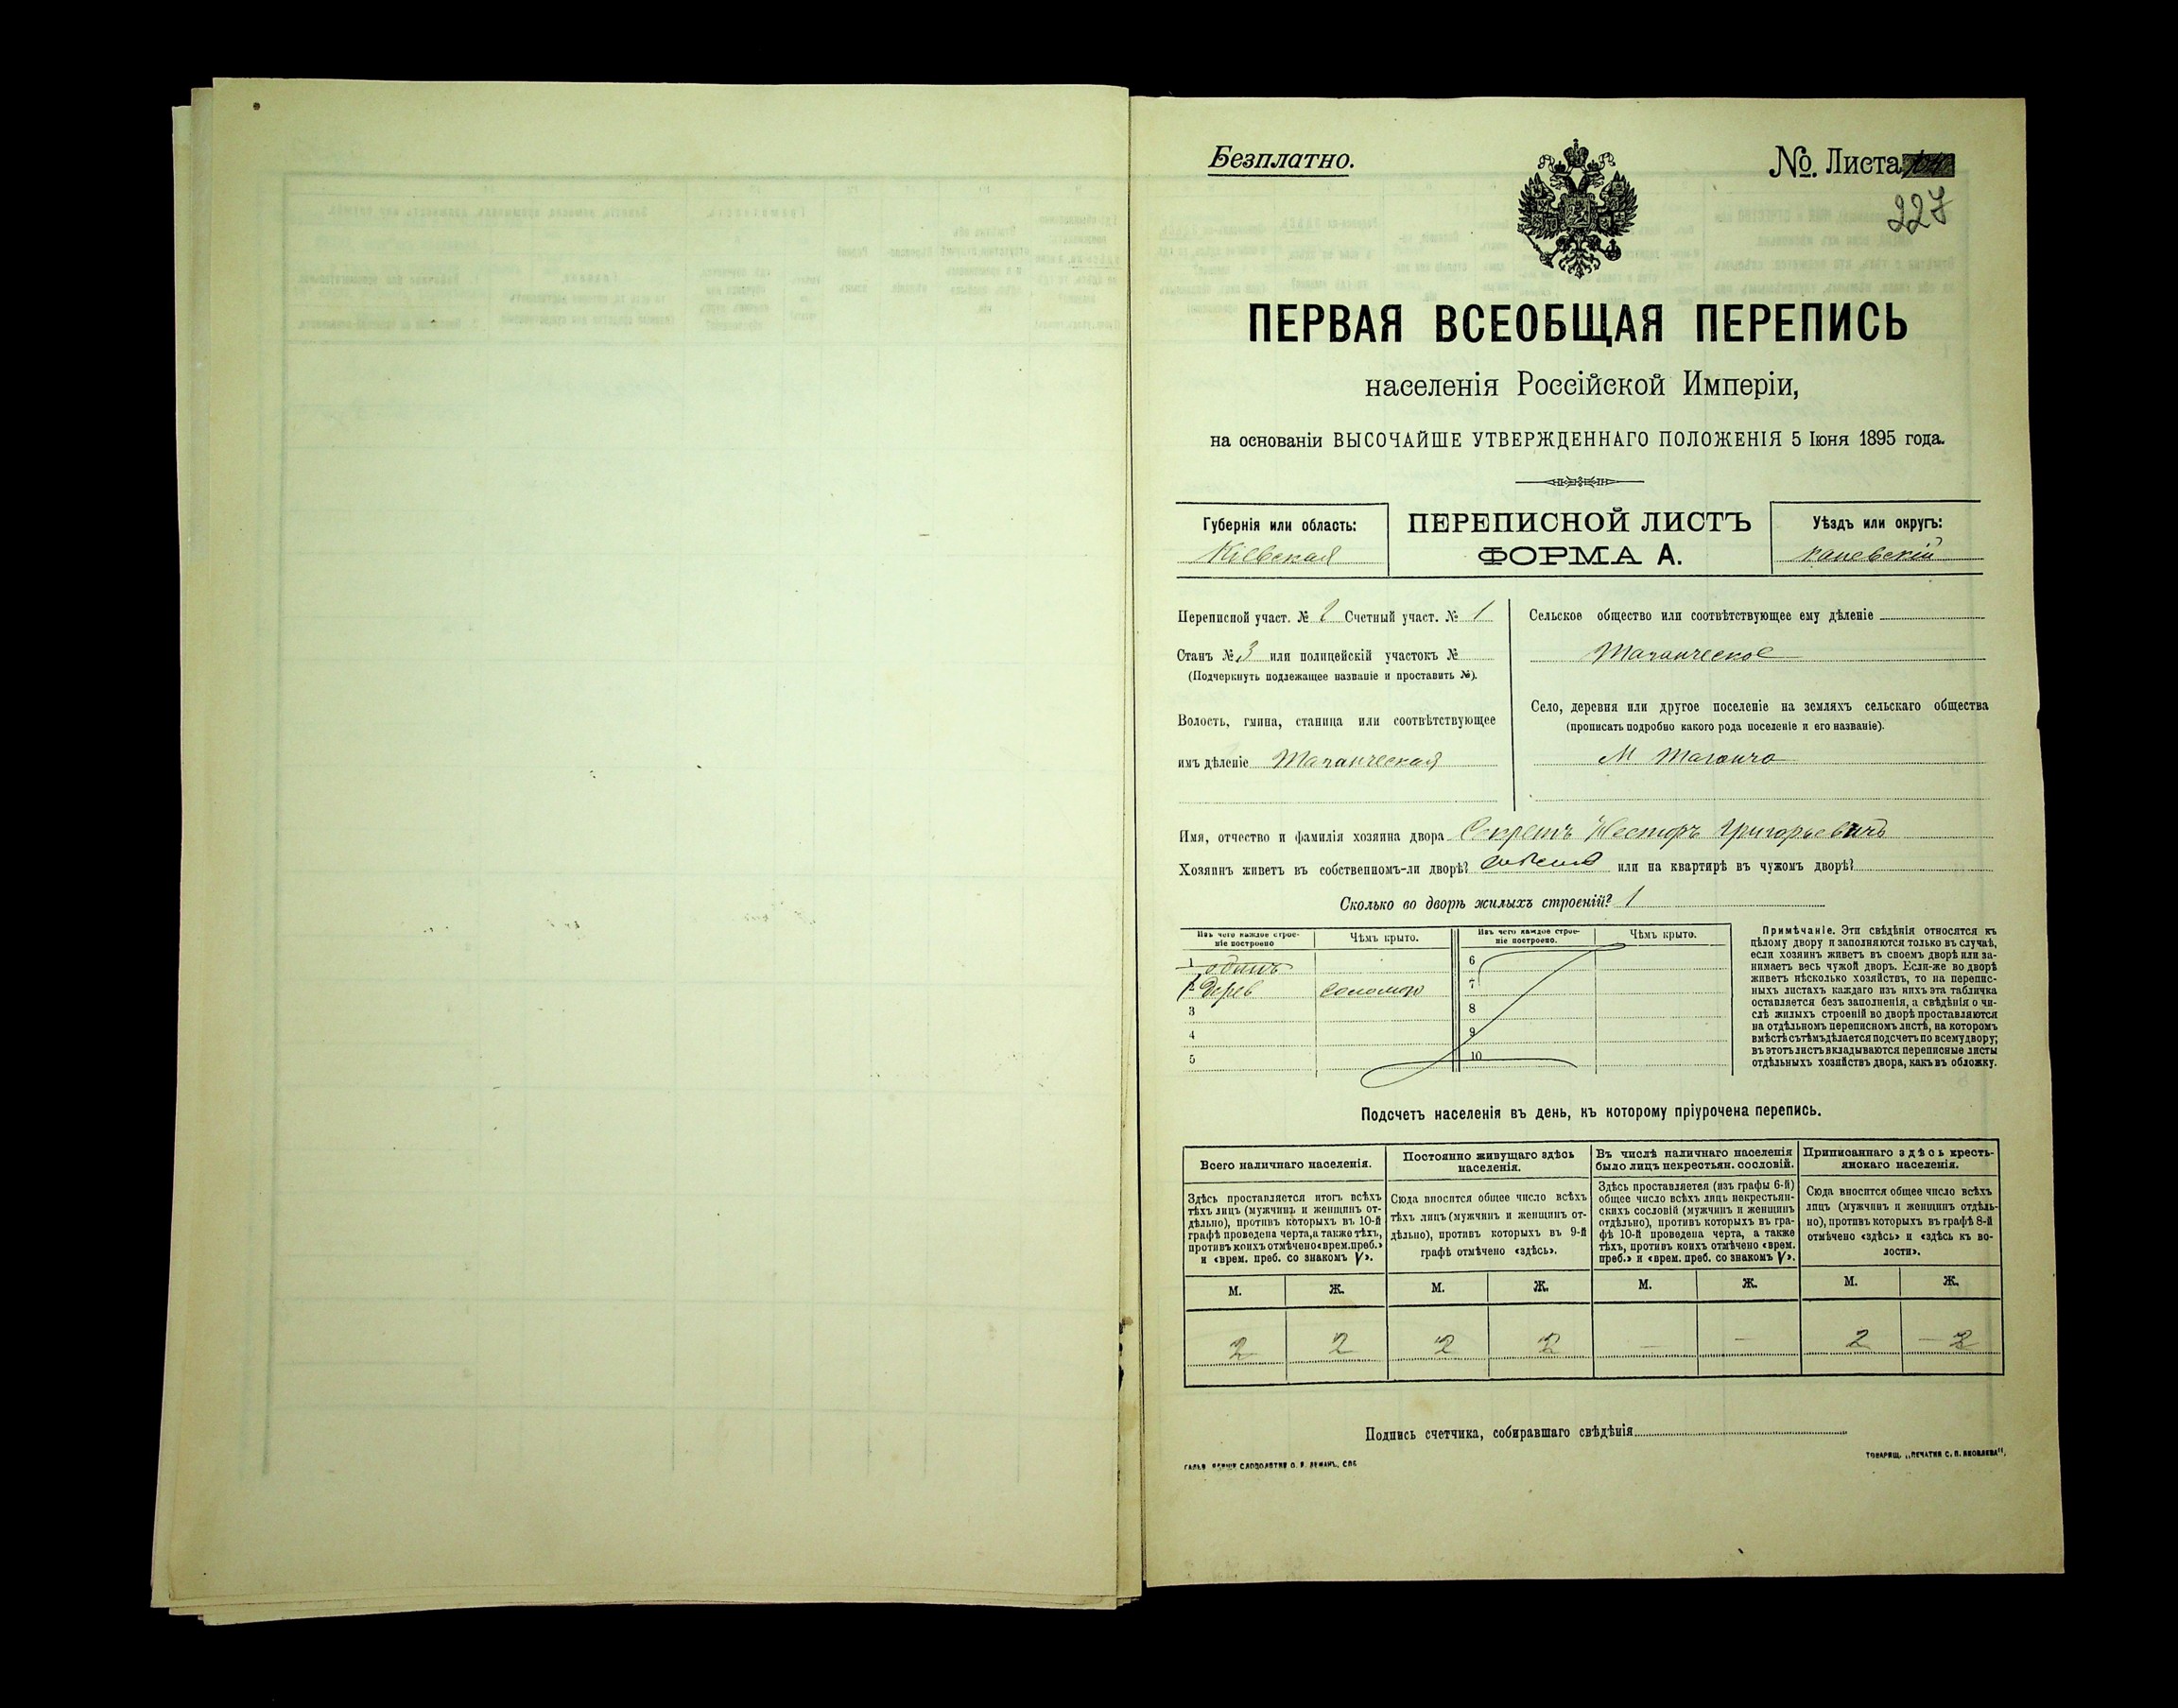 Безплатно.
№. Листа
227
ПЕРВАЯ ВСЕОБЩАЯ ПЕРЕПИСЬ
населенія Россійской Имперіи,
на основаніи ВЫСОЧАЙШЕ УТВЕРЖДЕННАГО ПОЛОЖЕНІЯ 5 Іюня 1895 года.
Губернія или область:
Кіевская
ПЕРЕПИСНОЙ ЛИСТЪ
ФОРМА А.
Уѣздъ или округъ:
каневскій
Переписной участ. № 2 Счетный участ. № 1
Станъ № 3 или полицейскій участокъ №
(Подчеркнуть подлежащее названіе и проставить №).
Волость, гмина, станица или соотвѣтствующее
имъ дѣленіе Таганческая
Сельское общество или соотвѣтствующее ему дѣленіе
Таганческое
Село, деревня или другое поселеніе на земляхъ сельскаго общества
(прописать подробно какого рода поселеніе и его названіе).
М Таганча
Имя, отчество и фамилія хозяина двора Секретъ Несторъ Григорьевичъ
Хозяинъ живетъ въ собственномъ-ли дворѣ? или на квартирѣ въ чужомъ дворѣ?
Сколько во дворѣ жилыхъ строеній? 1
Изъ чего каждое строе-
ніе построено
Чѣмъ крыто.
Изъ чего каждое строе-
ніе построено.
Чѣмъ крыто.
1 одинъ
Дерев соломою
3
4
5
6
7
8
9
10
Примѣчаніе. Эти свѣдѣнія относятся къ
цѣлому двору и заполняются только въ случаѣ,
если хозяинъ живетъ въ своемъ дворѣ или за-
нимаетъ весь чужой дворъ. Если-же во дворѣ
живетъ нѣсколько хозяйствъ, то на перепис-
ныхъ листахъ каждаго изъ нихъ эта табличка
оставляется безъ заполненія, а свѣдѣнія о чи-
слѣ жилыхъ строеній во дворѣ проставляются
на отдѣльномъ переписномъ листѣ, на которомъ
вмѣстѣ съ тѣмъ дѣлается подсчетъ по всему двору;
въ этотъ листъ вкладываются переписные листы
отдѣльныхъ хозяйствъ двора, какъ въ обложку.
Подсчетъ населенія въ день, къ которому пріурочена перепись.
Всего наличнаго населенія.
Здѣсь проставляется итогъ всѣхъ
тѣхъ лицъ (мужчинъ и женщинъ от-
дѣльно), противъ которыхъ въ 10-й
графѣ проведена черта, а также тѣхъ,
противъ коихъ отмѣчено «врем. преб.»
и «врем. преб. со знакомъ V».
Постоянно живущаго здѣсь
населенія.
Сюда вносится общее число всѣхъ
тѣхъ лицъ (мужчинъ и женщинъ от-
дѣльно), противъ которыхъ въ 9-й
графѣ отмѣчено «здѣсь».
Въ числѣ наличнаго населенія
было лицъ некрестьян. сословій.
Здѣсь проставляется (изъ графы 6-й)
общее число всѣхъ лицъ некрестьян-
скихъ сословій (мужчинъ и женщинъ
отдѣльно), противъ которыхъ въ гра-
фѣ 10-й проведена черта, а также
тѣхъ, противъ коихъ отмѣчено «врем.
преб.» и «врем. преб. со знакомъ V».
Приписаннаго здѣсь кресть-
янскаго населенія.
Сюда вносится общее число всѣхъ
лицъ (мужчинъ и женщинъ отдѣль-
но), противъ которыхъ въ графѣ 8-й
отмѣчено «здѣсь» и «здѣсь къ во-
лости».
М. Ж. М. Ж. М. Ж. М. Ж.
2 2 2 2 — — 2 2
Подпись счетчика, собиравшаго свѣдѣнія
СЛОВОЛИТНЯ О. И. ЛЕМАНЪ, СПБ
ТОВАРИЩ. „ПЕЧАТНЯ С. П. ЯКОВЛЕВА".